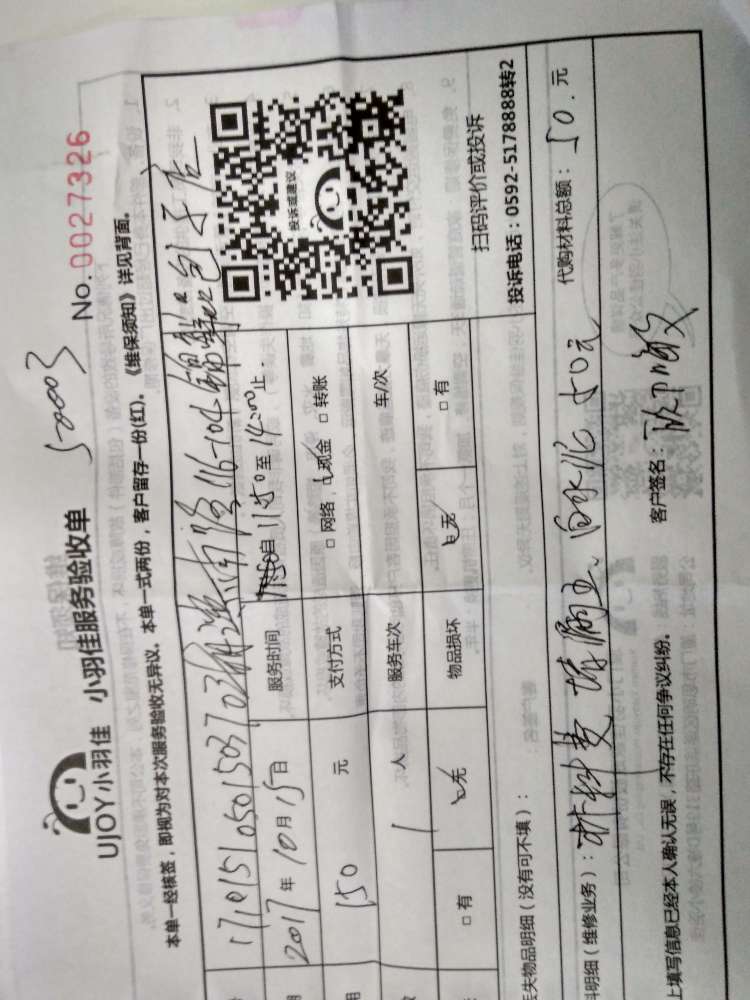 UJOY小羽佳 小羽佳服务验收单 50003 No.0027326
本单一经核签，即视为对本次服务验收无异议。本单一式两份，客户留存一份(红)。《维保须知》详见背面。
116-104 包子店
2017年10月15日 服务时间 自1150至14:00止
150元 支付方式 □网络 □现金 □转账
1人 服务车次 车/次
□有 □无 物品损坏 □无 □有
投诉或建议
扫码评价或投诉
投诉电话：0592-5178888转2
失物品明细（没有可不填）：
明细（维修业务）：材料费 白水泥 50元 代购材料总额：50.元
填写信息已经本人确认无误，不存在任何争议纠纷。 客户签名：